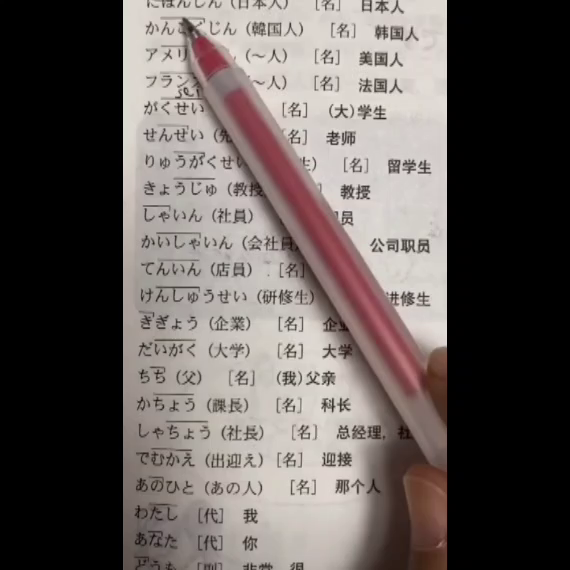 にほんじん（日本人） ［名］ 日本人
かんこくじん（韓国人） ［名］ 韩国人
アメリ （～人） ［名］ 美国人
フラン （～人） ［名］ 法国人
がくせい ［名］ （大）学生
せんせい（先 ［名］ 老师
りゅうがくせい 生） ［名］ 留学生
きょうじゅ（教授 教授
しゃいん（社員） 员
かいしゃいん（会社員 公司职员
てんいん（店員） ［名］
けんしゅうせい（研修生） 进修生
きぎょう（企業） ［名］ 企业
だいがく（大学） ［名］ 大学
ちち（父） ［名］ （我）父亲
かちょう（課長） ［名］ 科长
しゃちょう（社長） ［名］ 总经理，社
でむかえ（出迎え）［名］ 迎接
あのひと（あの人） ［名］ 那个人
わたし ［代］ 我
あなた ［代］ 你
どうも ［副］ 非常，很